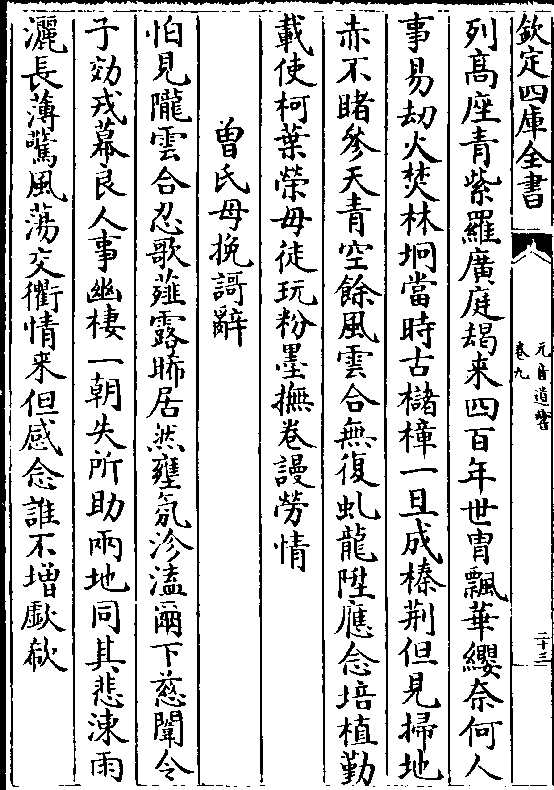 欽定四庫全書
元音遺響
卷九
二十三
列髙座青紫羅廣庭朅来四百年世胄飄華纓奈何人
事易刼火焚林坰當時古櫧樟一旦成榛荆但見掃地
赤不睹參天青空餘風雲合無復虬龍陞應念培植勤
載使柯葉榮毋徒玩粉墨撫卷謾勞情
曽氏母挽謌辭
怕見隴雲合忍歌薤露晞居然壅氛沴溘爾下慈闈令
子効戎幕良人事幽棲一朝失所助兩地同其悲涷雨
灑長薄驚風蕩交衢情来但感念誰不增歔欷